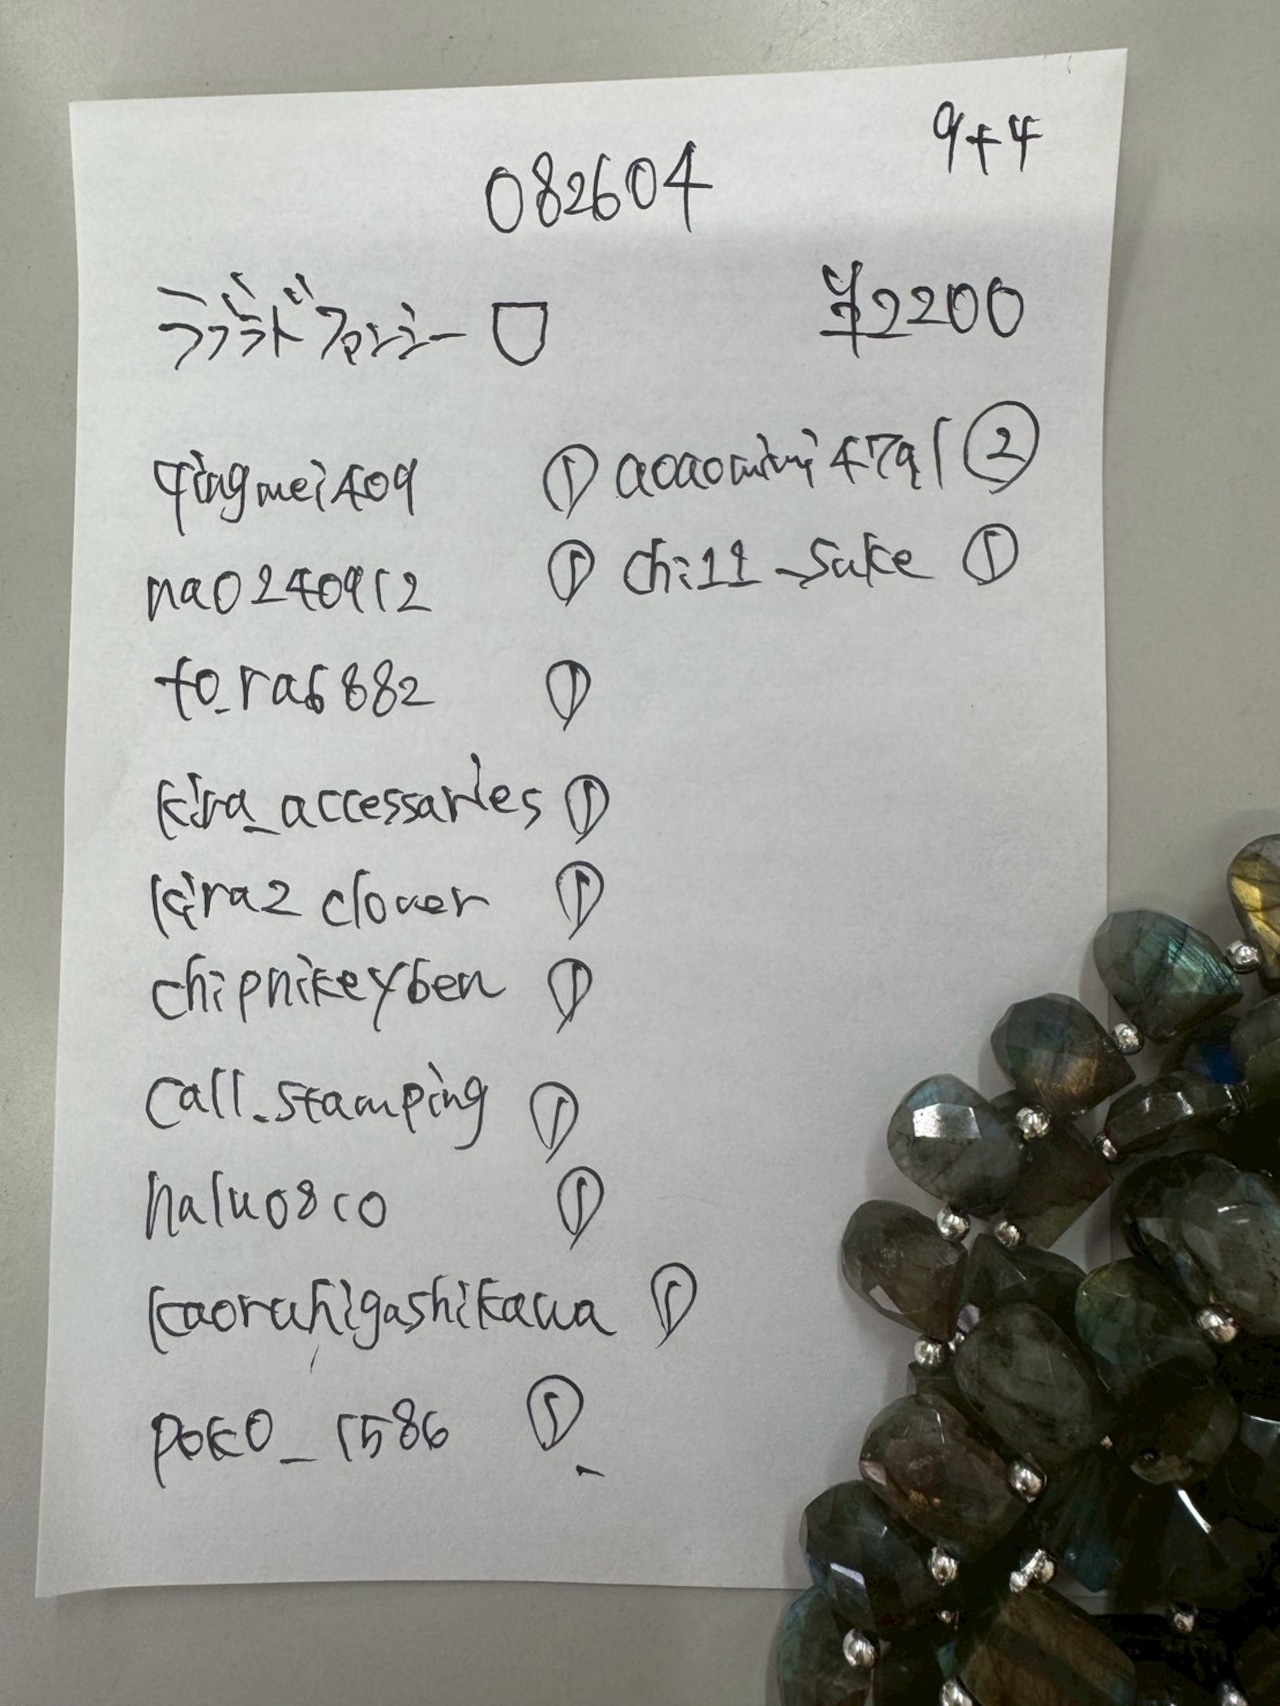 9+4
082604
ラブラドファンシー
¥2200
qingmei409 ①
na0240912 ①
to_ra6882 ①
kira_accessaries ①
kira2clover ①
chipnikeyben ①
call_stamping ①
halu0810 ①
kaoruhigashikawa ①
poko_1586 ①
aoaomimi4791 ②
chi11_sake ①